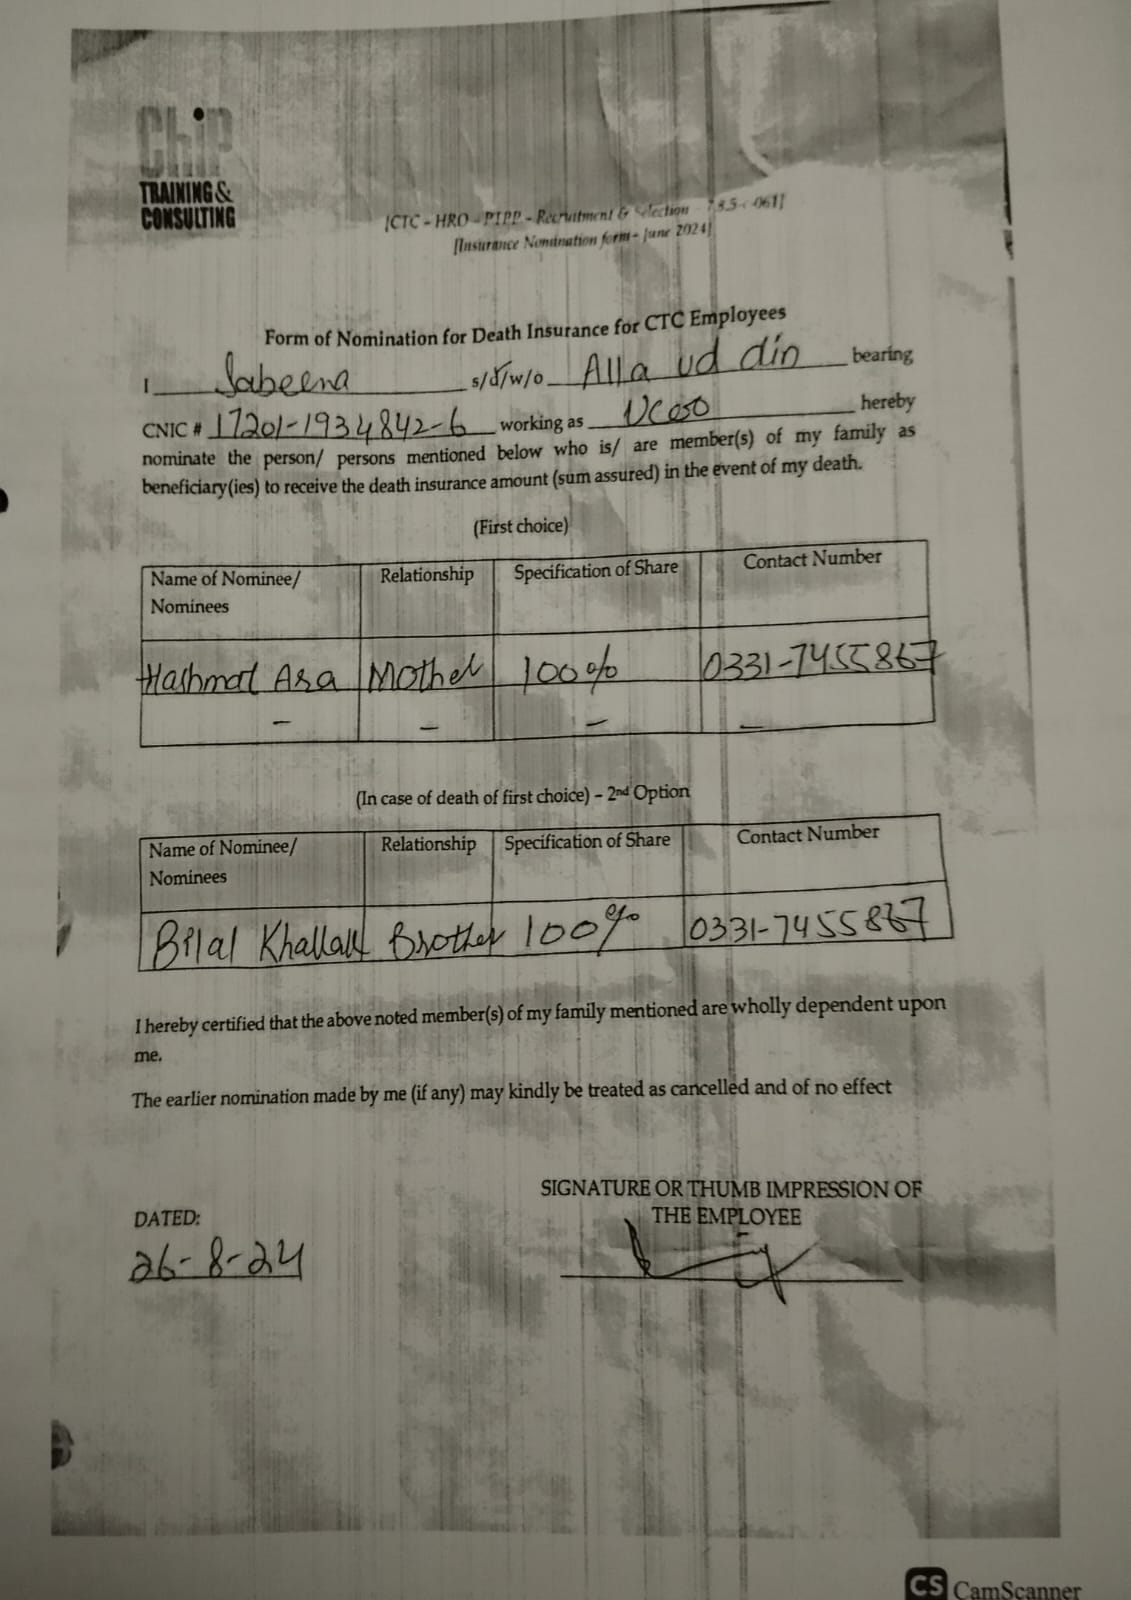 ChiP
TRAINING &
CONSULTING
[CTC - HRO - PTPP - Recruitment & Selection - 7.3.5 - 061]
[Insurance Nomination form - June 2024]
Form of Nomination for Death Insurance for CTC Employees
I Sabeena s/d/w/o Alla ud din bearing
CNIC # 17201-1934842-6 working as UCCSO hereby
nominate the person/ persons mentioned below who is/ are member(s) of my family as
beneficiary(ies) to receive the death insurance amount (sum assured) in the event of my death.
(First choice)
Name of Nominee/ Relationship Specification of Share Contact Number
Nominees
Hashmat Ara Mother 100% 0331-7455867
– – – –
(In case of death of first choice) – 2nd Option
Name of Nominee/ Relationship Specification of Share Contact Number
Nominees
Bilal Khattak Brother 100% 0331-7455867
I hereby certified that the above noted member(s) of my family mentioned are wholly dependent upon
me.
The earlier nomination made by me (if any) may kindly be treated as cancelled and of no effect
SIGNATURE OR THUMB IMPRESSION OF
DATED: THE EMPLOYEE
26-8-24
CS CamScanner